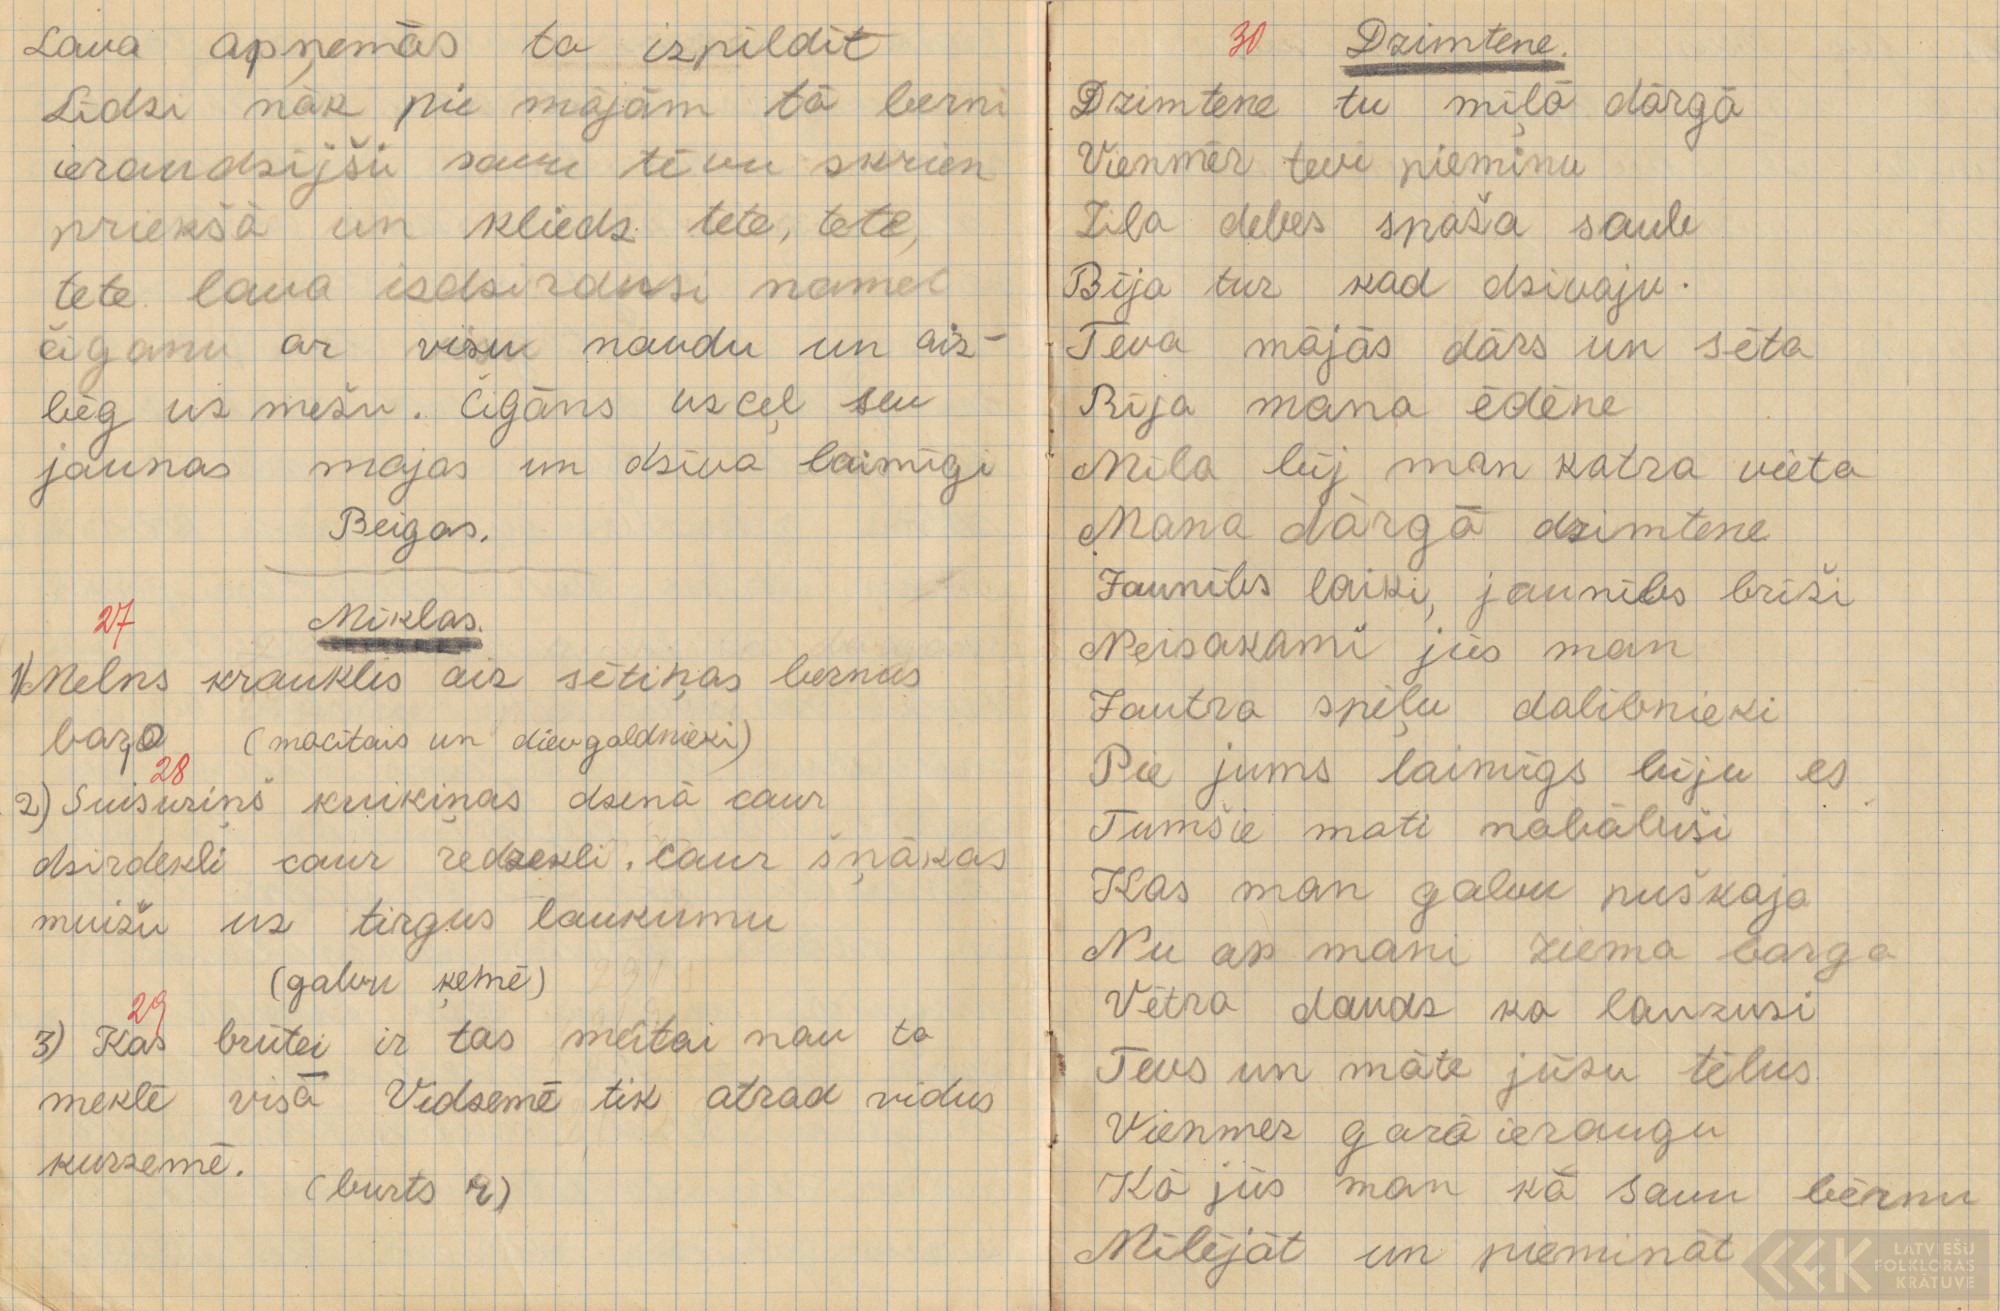 Lauva apņemās to izpildīt
Līdzi nāk pie mājām tā berni
ieraudzijši savu tēvu skrien
priekšā un kliedz tete, tete,
tete. lauva izdzirdusi namet
čiganu ar visu naudu un aiz-
bēg uz mežu. Čigāns uzceļ sev
jaunas majas un dzīvo laimīgi
Beigas.
27 Mīklas.
1) Melns krauklis aiz sētiņas bernus
baŗo (macitais un dievgaldnieki)
28
2) Suisuriņš kuikiņas dzenā caur
dzirdekli caur redzekli. caur šņākas
muižu uz tirgus laukumu
(galvu ķemē)
29
3) Kas brūtei ir tas meitai nav to
meklē visā Vidzemē tik atrad vidus
kurzemē.
(burts r)
30 Dzimtene.
Dzimtene tu mīļā dārgā
Vienmēr tevi pieminu
Zila debes spoža saule
Bija tur kad dzivaju.
Tēva mājās dārs un sēta
Bija mana ēdēne
Mīla bij man katra vieta
Mana dārgā dzimtene
Jaunības laiki, jaunības brīži
Neisakami jūs man
Jautra spēļu dalibnieki
Pie jums laimīgs biju es
Tumšie mati nobāluši
Kas man galvu puškaja
Nu ap mani ziema barga
Vētra daudz ko lauzusi
Tevs un māte jūsu tēlus
Vienmer garā ieraugu
Kā jūs man kā savu bērnu
Mīlējāt un pieminat
LATVIEŠU
FOLKLORAS
KRĀTUVE